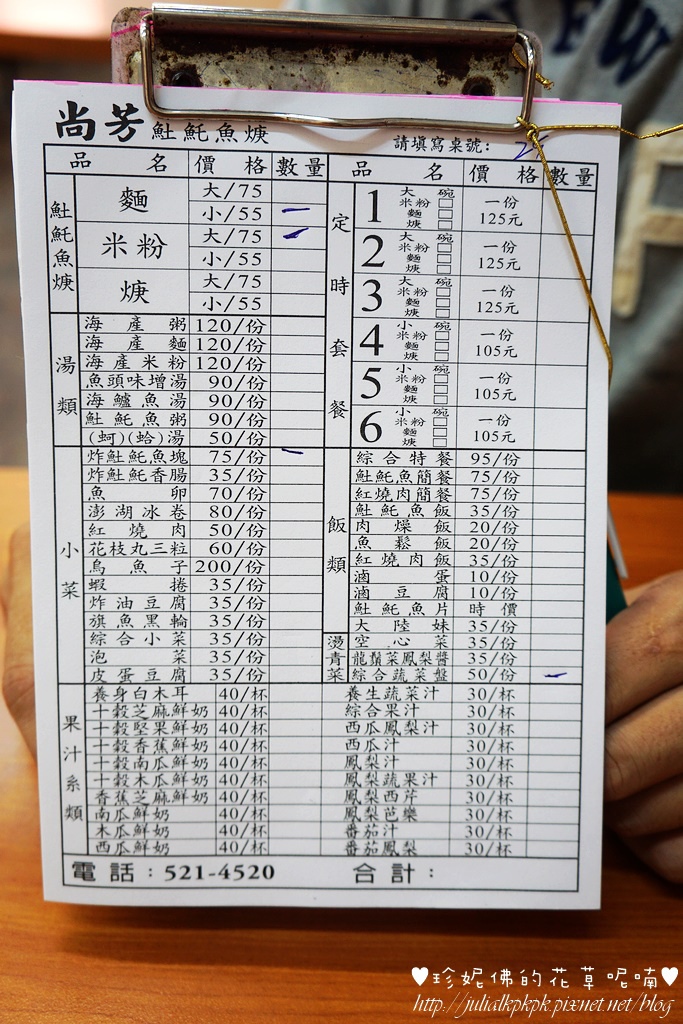 尚芳 魠魠魚焿 請填寫桌號：
品名 價格 數量 品名 價格 數量
魠魠魚焿
麵 大/75
小/55 一
米粉 大/75
小/55
焿 大/75
小/55
湯類
海產粥 120/份
海產麵 120/份
海產米粉 120/份
魚頭味增湯 90/份
海鱸魚湯 90/份
魠魠魚粥 90/份
(蚵)(蛤)湯 50/份
小菜
炸魠魠魚塊 75/份
炸魠魠香腸 35/份
魚卵 70/份
澎湖冰卷 80/份
紅燒肉 50/份
花枝丸三粒 60/份
烏魚子 200/份
蝦捲 35/份
炸油豆腐 35/份
旗魚黑輪 35/份
綜合小菜 35/份
泡菜 35/份
皮蛋豆腐 35/份
定時套餐
1 大碗 米粉 麵 焿 一份 125元
2 大碗 米粉 麵 焿 一份 125元
3 大碗 米粉 麵 焿 一份 125元
4 小碗 米粉 麵 焿 一份 105元
5 小碗 米粉 麵 焿 一份 105元
6 小碗 米粉 麵 焿 一份 105元
飯類
綜合特餐 95/份
魠魠魚簡餐 75/份
紅燒肉簡餐 75/份
魠魠魚飯 35/份
肉燥飯 20/份
魚鬆飯 20/份
紅燒肉飯 35/份
滷蛋 10/份
滷豆腐 10/份
魠魠魚片 時價
大陸妹 35/份
燙青菜
空心菜 35/份
龍鬚菜鳳梨醬 35/份
綜合蔬菜盤 50/份
果汁系類
養身白木耳 40/杯 養生蔬菜汁 30/杯
十穀芝麻鮮奶 40/杯 綜合果汁 30/杯
十穀堅果鮮奶 40/杯 西瓜鳳梨汁 30/杯
十穀香蕉鮮奶 40/杯 西瓜汁 30/杯
十穀南瓜鮮奶 40/杯 鳳梨汁 30/杯
十穀木瓜鮮奶 40/杯 鳳梨蔬果汁 30/杯
香蕉芝麻鮮奶 40/杯 鳳梨西芹 30/杯
南瓜鮮奶 40/杯 鳳梨芭樂 30/杯
木瓜鮮奶 40/杯 番茄汁 30/杯
西瓜鮮奶 40/杯 番茄鳳梨 30/杯
電話：521-4520 合計：
♥珍妮佛的花草呢喃♥
http://julialkpkpk.pixnet.net/blog